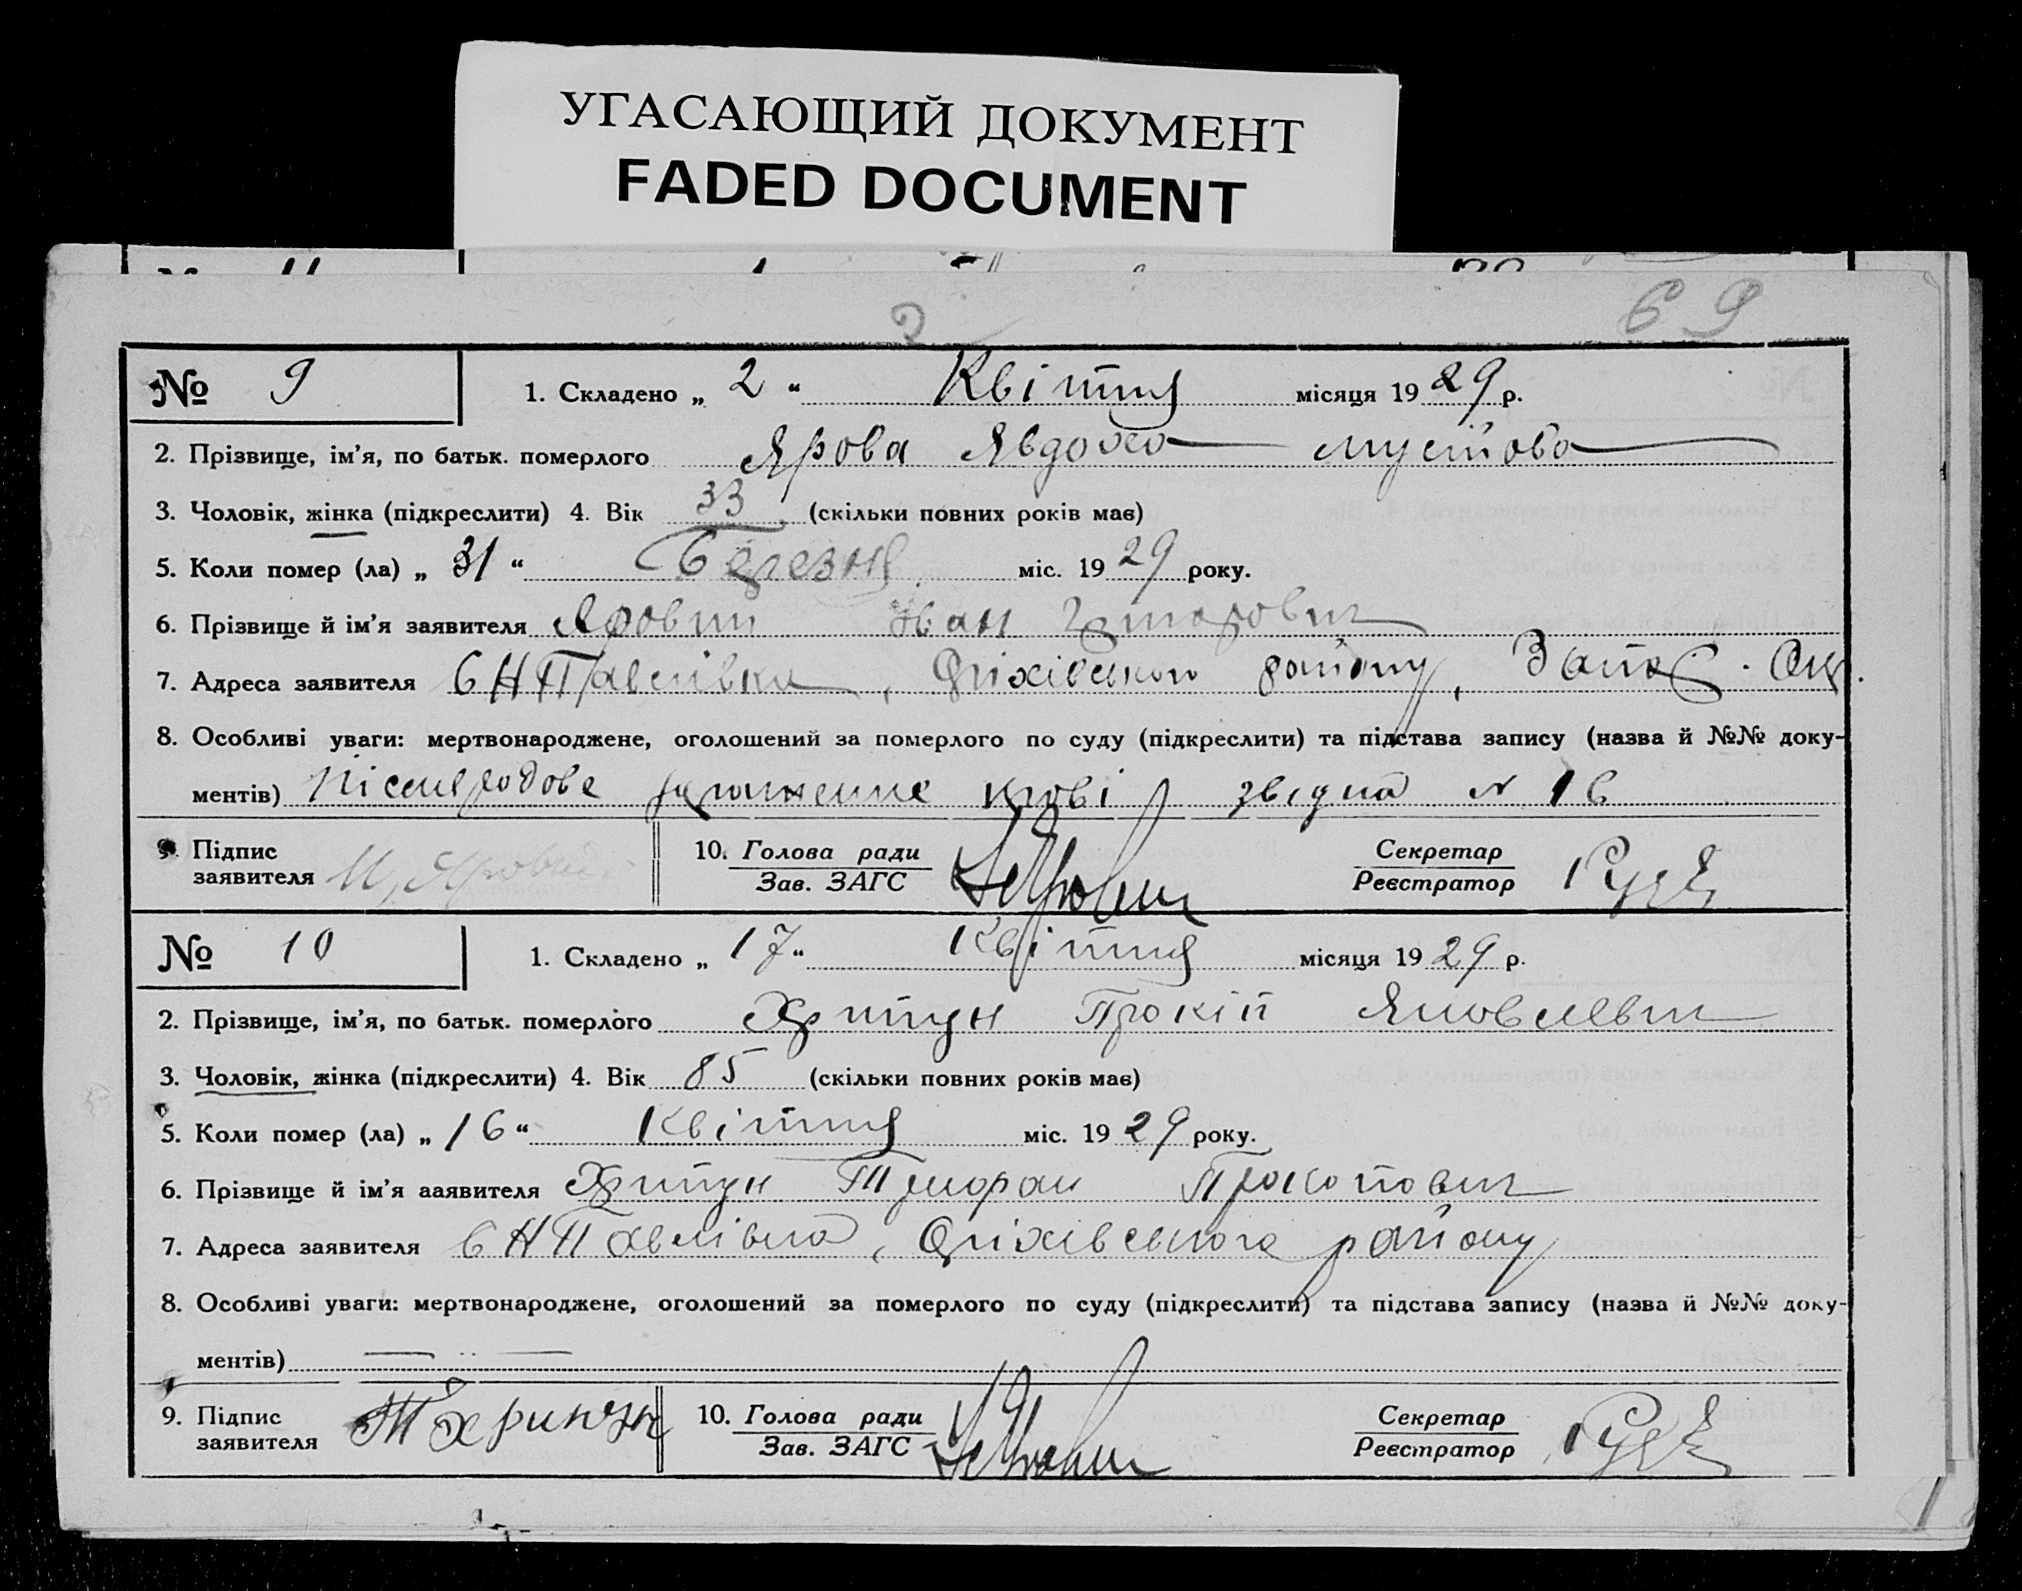 УГАСАЮЩИЙ ДОКУМЕНТ
FADED DOCUMENT
69
№ 9 1. Складено „ 2 “ Квітня місяця 1929 р.
2. Прізвище, ім’я, по батьк. померлого Ярова Явдоха
3. Чоловік, жінка (підкреслити) 4. Вік 33 (скільки повних років має)
5. Коли помер (ла) „ 31 “ Березня міс. 1929 року.
6. Прізвище й ім’я заявителя Яровий Іван
7. Адреса заявителя С Н Павлівка, Оріхівського району, Запор. Окр.
8. Особливі уваги: мертвонароджене, оголошений за померлого по суду (підкреслити) та підстава запису (назва й №№ доку-
ментів) Післяродове зараженнє крові
9. Підпис заявителя И. Яровий 10. Голова ради Секретар
Зав. ЗАГС Реєстратор
№ 10 1. Складено „ 17 “ Квітня місяця 1929 р.
2. Прізвище, ім’я, по батьк. померлого Хрипун Прокіп Яковлевич
3. Чоловік, жінка (підкреслити) 4. Вік 85 (скільки повних років має)
5. Коли помер (ла) „ 16 “ Квітня міс. 1929 року.
6. Прізвище й ім’я заявителя Хрипун Прокопович
7. Адреса заявителя С Н Павлівка, Оріхівського району
8. Особливі уваги: мертвонароджене, оголошений за померлого по суду (підкреслити) та підстава запису (назва й №№ доку-
ментів)
9. Підпис заявителя Т Хрипун 10. Голова ради Секретар
Зав. ЗАГС Реєстратор